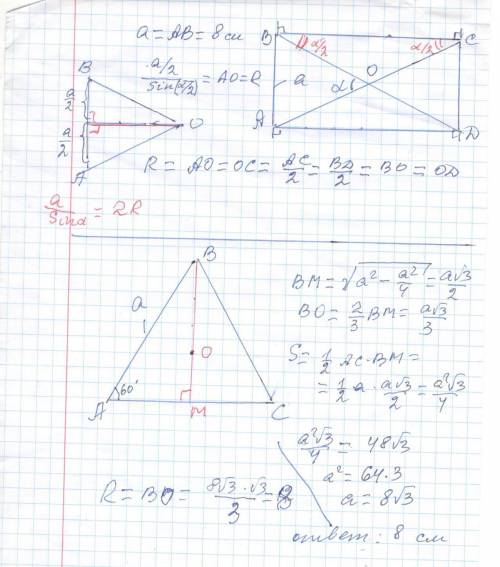 a = AB = 8 см
B
a/2
a/2
A
O
(a/2)/sin(α/2) = AO = R
B
α/2
α/2
C
a
α
O
A
D
R = AO = OC = AC/2 = BD/2 = BO = OD
a/sinα = 2R
B
a
O
60°
A
M
C
BM = √(a² - a²/4) = a√3/2
BO = 2/3 BM = a√3/3
S = 1/2 AC · BM =
= 1/2 a · a√3/2 = a²√3/4
a²√3/4 = 48√3
a² = 64·3
a = 8√3
R = BO = 8√3·√3/3 = 8
ответ: 8 см